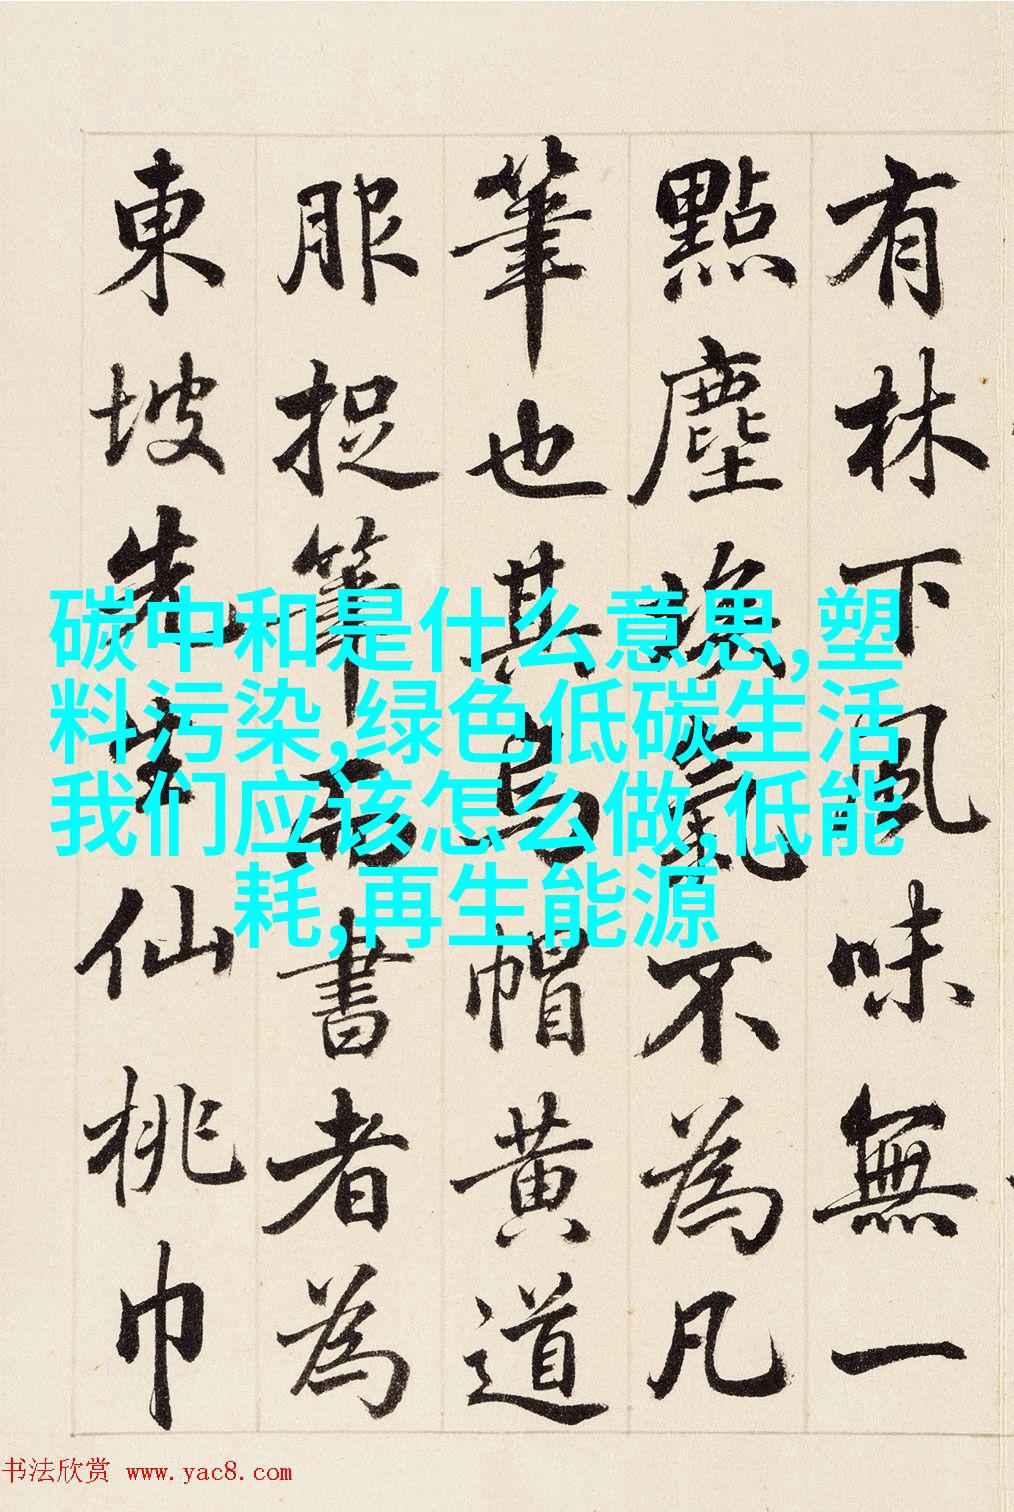 有林下風味無一
點塵氣不為凡
筆也其烏帽黃道
服捉筆而書者為
東坡先生仙桃巾
碳中和是什么意思,塑
料污染,绿色低碳生活
我们应该怎么做,低能
耗,再生能源
书法欣赏 www.yac8.com